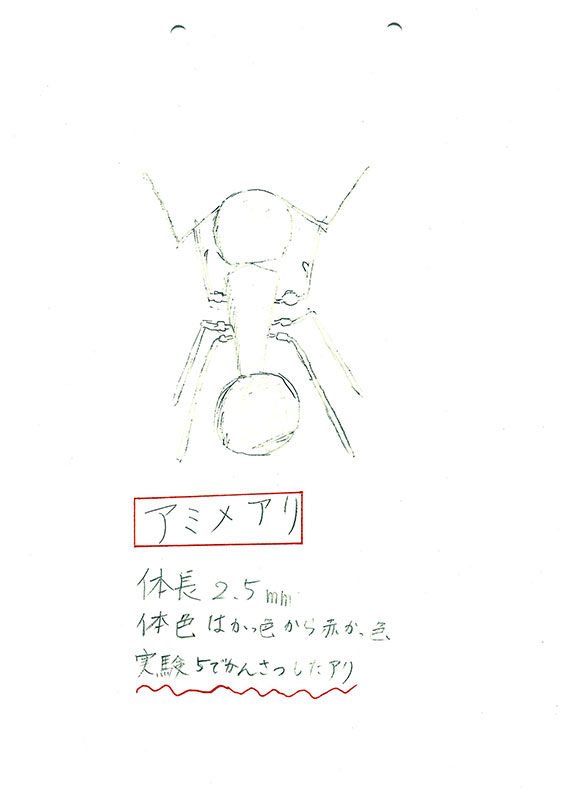 アミメアリ
体長 2.5mm
体色はかっ色から赤かっ色
実験5でかんさつしたアリ